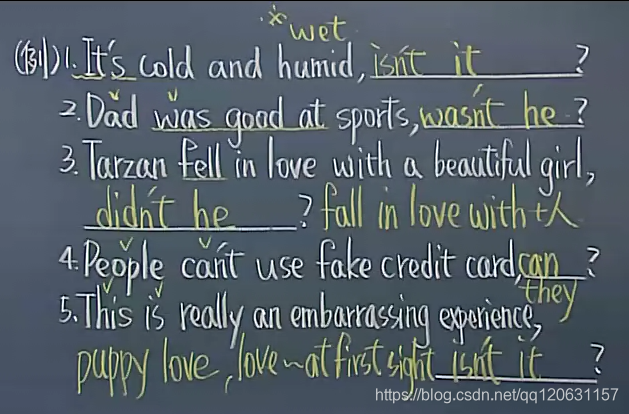 ※ wet
(例) 1. It's cold and humid, isn't it ?
2. Dad was good at sports, wasn't he ?
3. Tarzan fell in love with a beautiful girl,
didn't he ? fall in love with+人
4. People can't use fake credit card, can ?
they
5. This is really an embarrassing experience,
puppy love, love~at first sight isn't it ?
https://blog.csdn.net/qq120631157